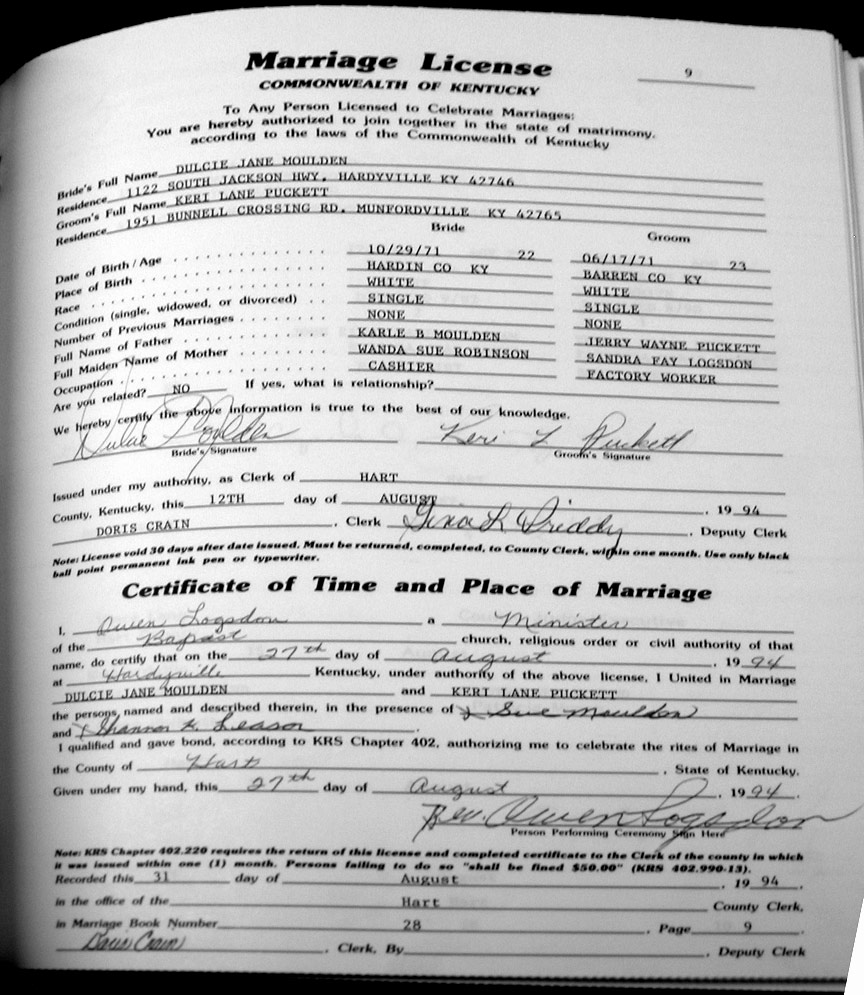 Marriage License
9
COMMONWEALTH OF KENTUCKY
To Any Person Licensed to Celebrate Marriages:
You are hereby authorized to join together in the state of matrimony,
according to the laws of the Commonwealth of Kentucky
Bride's Full Name DULCIE JANE MOULDEN
Residence 1122 SOUTH JACKSON HWY. HARDYVILLE KY 42746
Groom's Full Name KERI LANE PUCKETT
Residence 1951 BUNNELL CROSSING RD. MUNFORDVILLE KY 42765
Bride Groom
Date of Birth / Age 10/29/71 22 06/17/71 23
Place of Birth HARDIN CO KY BARREN CO KY
Race WHITE WHITE
Condition (single, widowed, or divorced) SINGLE SINGLE
Number of Previous Marriages NONE NONE
Full Name of Father KARLE B MOULDEN JERRY WAYNE PUCKETT
Full Maiden Name of Mother WANDA SUE ROBINSON SANDRA FAY LOGSDON
Occupation CASHIER FACTORY WORKER
Are you related? NO If yes, what is relationship?
We hereby certify the above information is true to the best of our knowledge.
Keri L Puckett
Bride's Signature Groom's Signature
Issued under my authority, as Clerk of HART
County, Kentucky, this 12TH day of AUGUST , 19 94
DORIS CRAIN , Clerk Gina L Priddy , Deputy Clerk
Note: License void 30 days after date issued. Must be returned, completed, to County Clerk, within one month. Use only black
ball point permanent ink pen or typewriter.
Certificate of Time and Place of Marriage
I, Owen Logsdon a Minister
of the Baptist church, religious order or civil authority of that
name, do certify that on the 27th day of August , 19 94
at Hardyville Kentucky, under authority of the above license, I United in Marriage
DULCIE JANE MOULDEN and KERI LANE PUCKETT
the persons named and described therein, in the presence of x Sue Moulden
and x Shannon K. Leason .
I qualified and gave bond, according to KRS Chapter 402, authorizing me to celebrate the rites of Marriage in
the County of Hart , State of Kentucky.
Given under my hand, this 27th day of August , 19 94 .
Rev. Owen Logsdon
Person Performing Ceremony Sign Here
Note: KRS Chapter 402.220 requires the return of this license and completed certificate to the Clerk of the county in which
it was issued within one (1) month. Persons failing to do so "shall be fined $50.00" (KRS 402.990-13).
Recorded this 31 day of August , 19 94 .
in the office of the Hart County Clerk,
in Marriage Book Number 28 , Page 9 .
Doris Crain , Clerk, By , Deputy Clerk